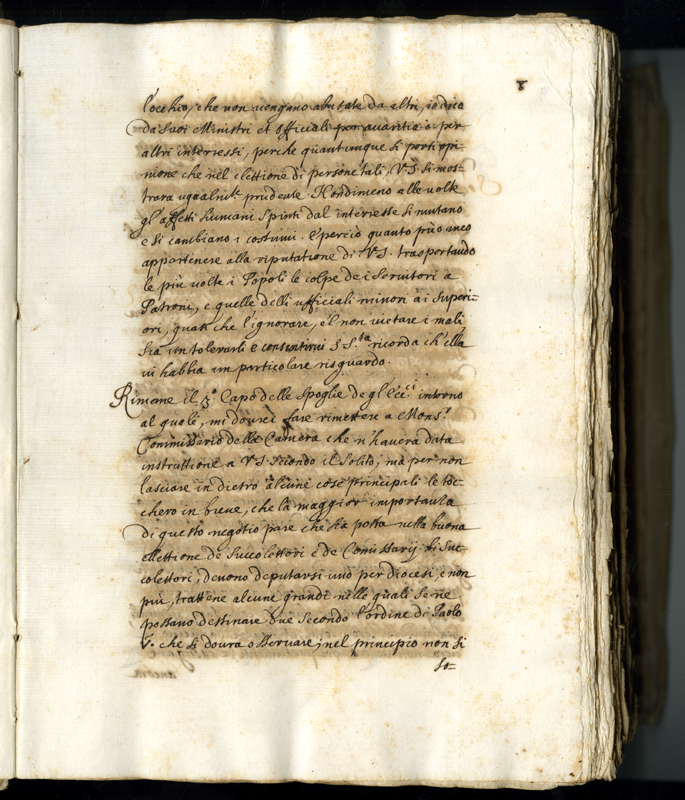 8
l'occhio, che non vengano abusate da altri, io dico
da suoi Ministri et officiali per avaritia o per
altri interessi, perche quantunque si porti opi-
nione che nel elettione di persone tali, V.S. si mos-
trara ugualm.te prudente. Nondimeno alle volte
gl'affetti humani spinti dal interesse si mutano
e si cambiano i costumi. E perciò quanto può anco
appartenere alla riputatione di V.S. trasportando
le più volte i Popoli le colpe de i Servitori a
Patroni, e quelle delli ufficiali minori ai Superi-
ori, quasi che l'ignorare, e'l non vietare i mali
sia un tolerarli e consentirvi S. S.ta ricorda ch'ella
vi habbia un particolare risguardo.
Rimane il 3.o Capo delle Spoglie de gl'Ecc.ci intorno
al quale, mi dovrei fare rimettere a Mons.r
Commissario della Camera che n'havera data
instruttione a V.S. secondo il solito, ma per non
lasciare in dietro alcune cose principali le toc-
chero in breve, che la maggior importanza
di questo negotio pare che stia posta nella buona
elettione de Succolettori e de Comissarij. Li Suc-
colettori, devono deputarsi uno per diocesi, e non
più, trattene alcune grandi nelle quali se ne
possano destinare due secondo l'ordine di Paolo
V. che si dovra osservare, nel principio non si
so-